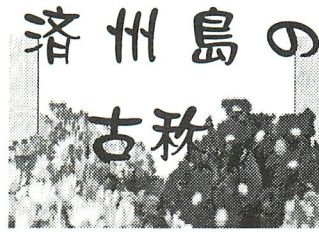 済州島の
古称